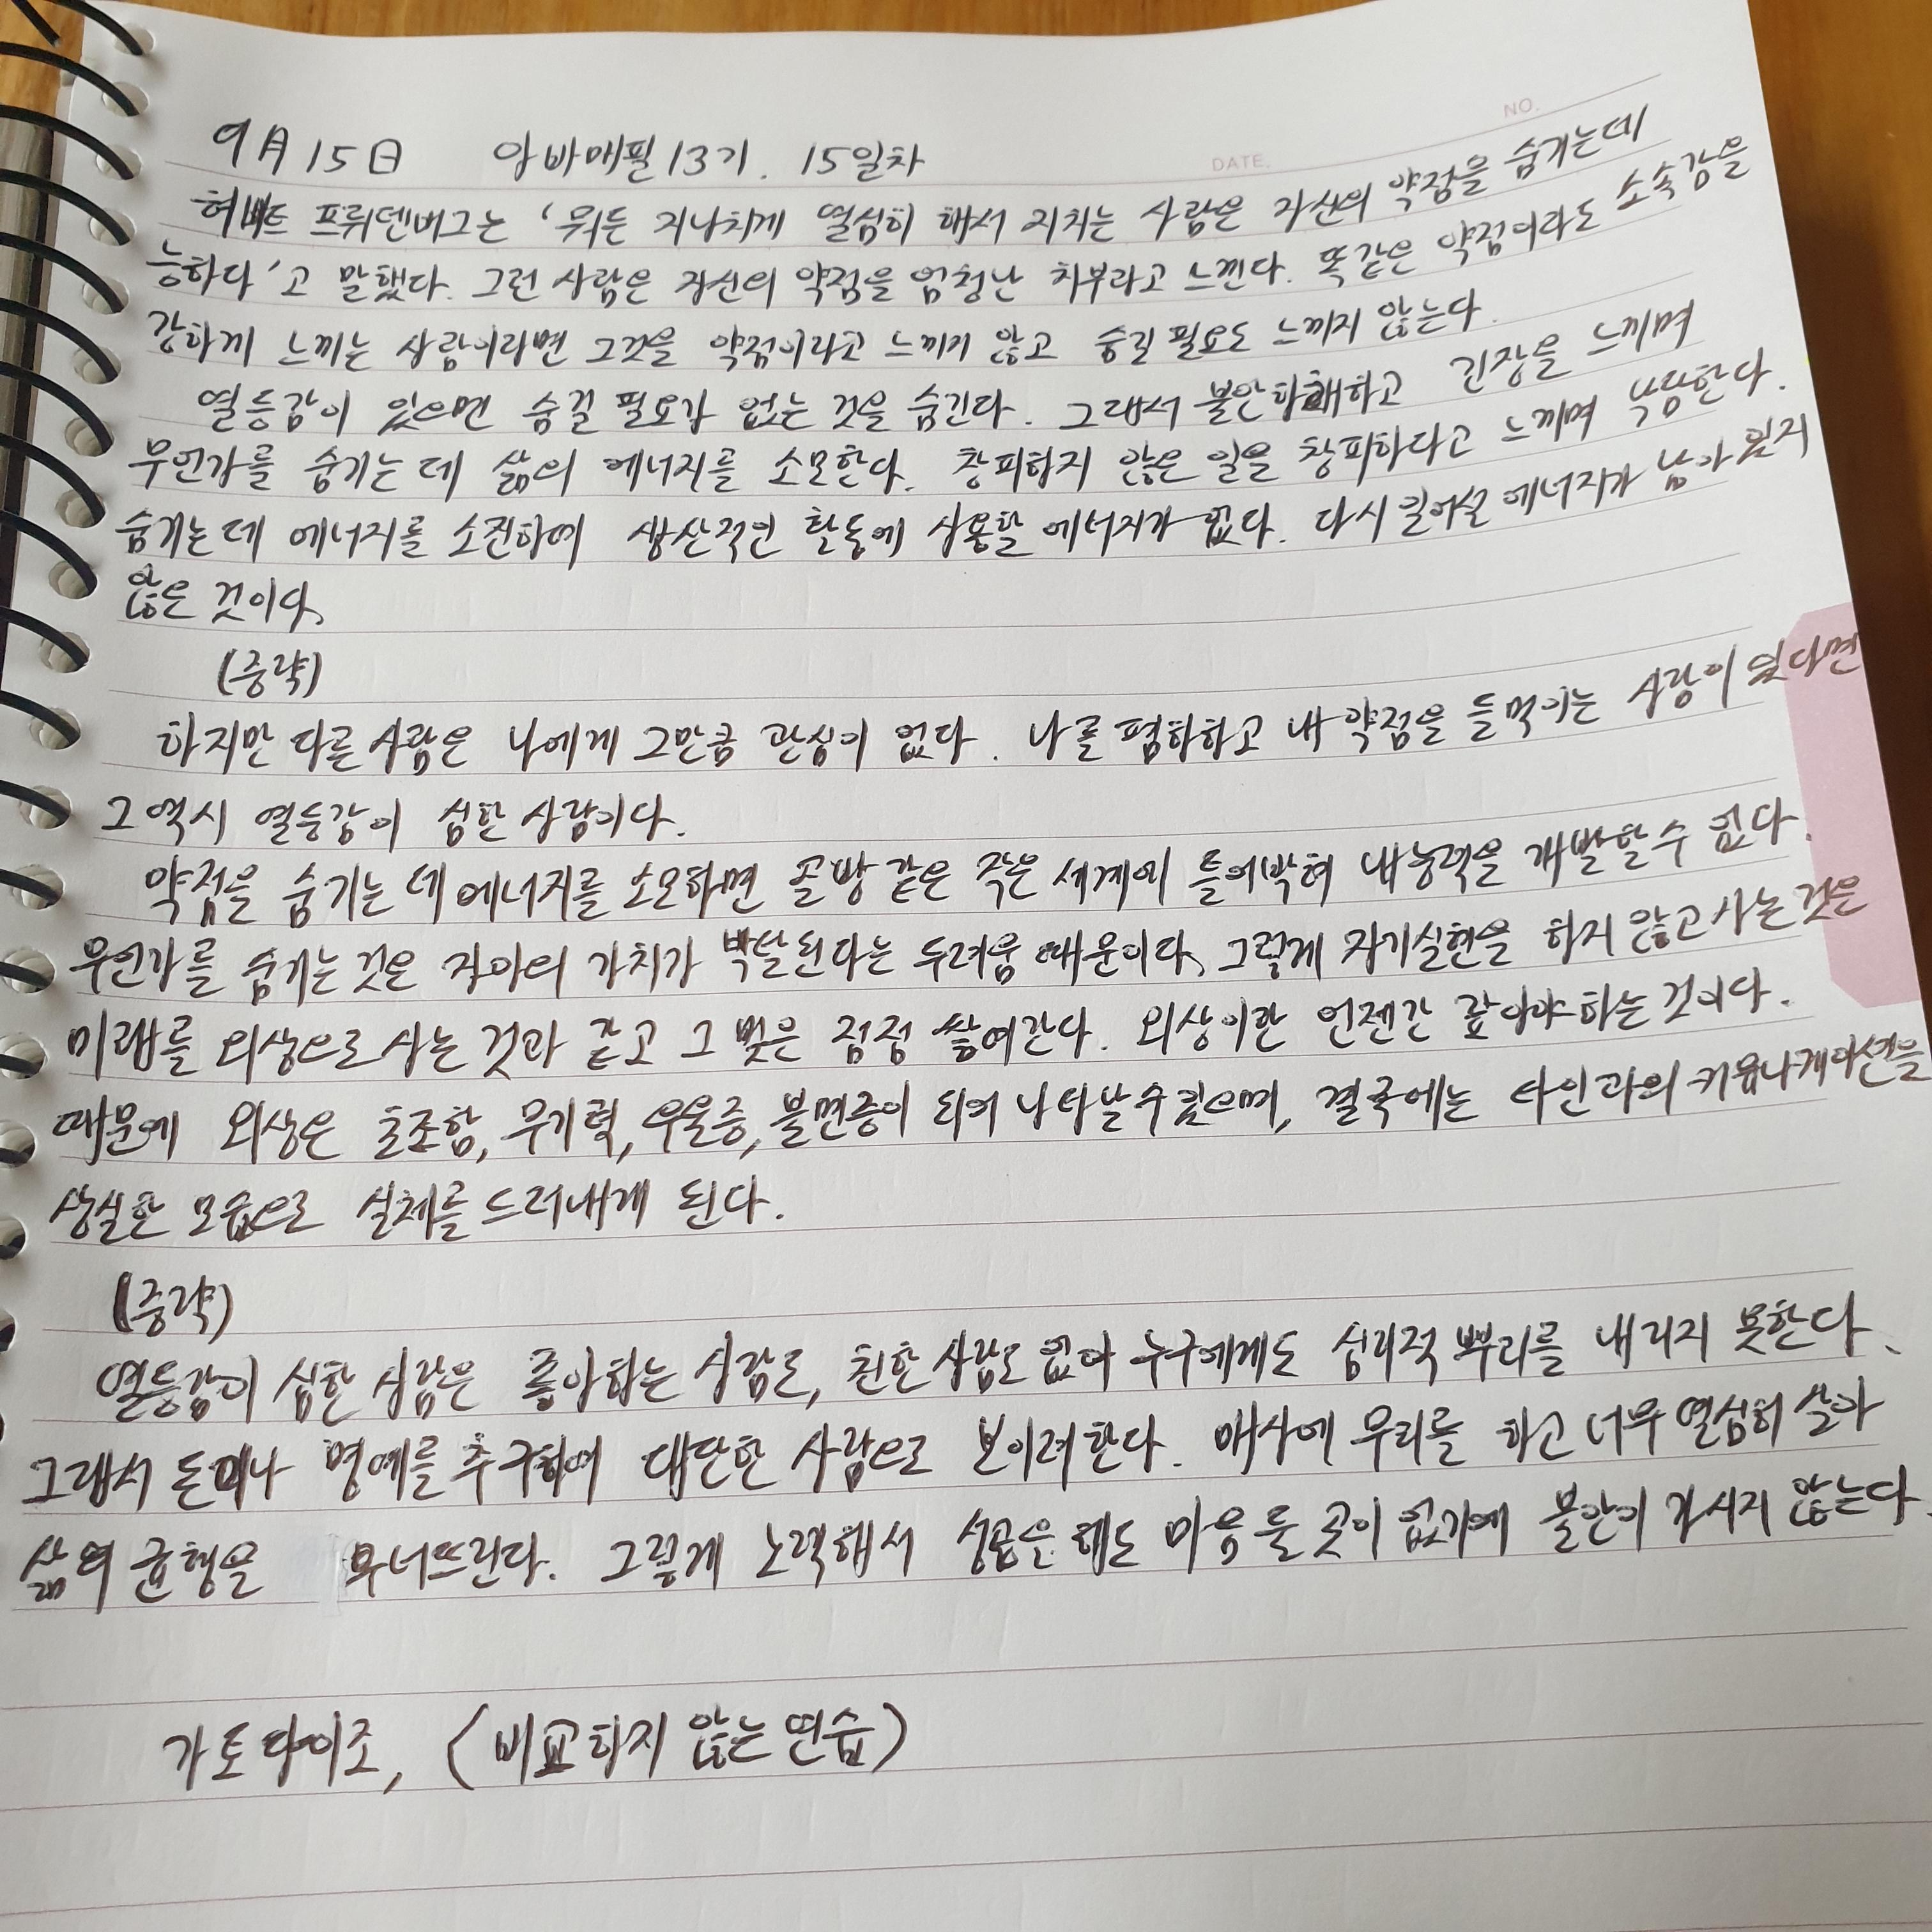 NO.
DATE.
9月15日 암바매필 13기. 15일차
허버트 프뤼덴버그는 '뭐든 지나치게 열심히 해서 지치는 사람은 자신의 약점을 숨기는데
능하다'고 말했다. 그런 사람은 자신의 약점을 엄청난 치부라고 느낀다. 똑같은 약점이라도 소속감을
강하게 느끼는 사람이라면 그것을 약점이라고 느끼지 않고 숨길 필요도 느끼지 않는다.
열등감이 있으면 숨길 필요가 없는 것을 숨긴다. 그래서 불안해하고 긴장을 느끼며
무언가를 숨기는 데 삶의 에너지를 소모한다. 창피하지 않은 일을 창피하다고 느끼며 낙담한다.
숨기는 데 에너지를 소진하여 생산적인 활동에 사용할 에너지가 없다. 다시 일어설 에너지가 남아 있지
않은 것이다.
(중략)
하지만 다른 사람은 나에게 그만큼 관심이 없다. 나를 폄하하고 내 약점을 들먹이는 사람이 있다면
그 역시 열등감이 심한 사람이다.
약점을 숨기는 데 에너지를 소모하면 골방 같은 작은 세계에 틀어박혀 내 능력을 개발할 수 없다.
무언가를 숨기는 것은 자아의 가치가 박탈된다는 두려움 때문이다. 그렇게 자기실현을 하지 않고 사는 것은
미래를 외상으로 사는 것과 같고 그 빚은 점점 쌓여간다. 외상이란 언젠간 갚아야 하는 것이다.
때문에 외상은 초조함, 무기력, 우울증, 불면증이 되어 나타날 수 있으며, 결국에는 타인과의 커뮤니케이션을
상실한 모습으로 실체를 드러내게 된다.
(중략)
열등감이 심한 사람은 좋아하는 사람도, 친한 사람도 없어 누구에게도 심리적 뿌리를 내리지 못한다.
그래서 돈이나 명예를 추구하여 대단한 사람으로 보이려 한다. 매사에 무리를 하고 너무 열심히 살아
삶의 균형을 무너뜨린다. 그렇게 노력해서 성공은 해도 마음 둘 곳이 없기에 불안이 가시지 않는다.
가토 다이조, (비교하지 않는 연습)